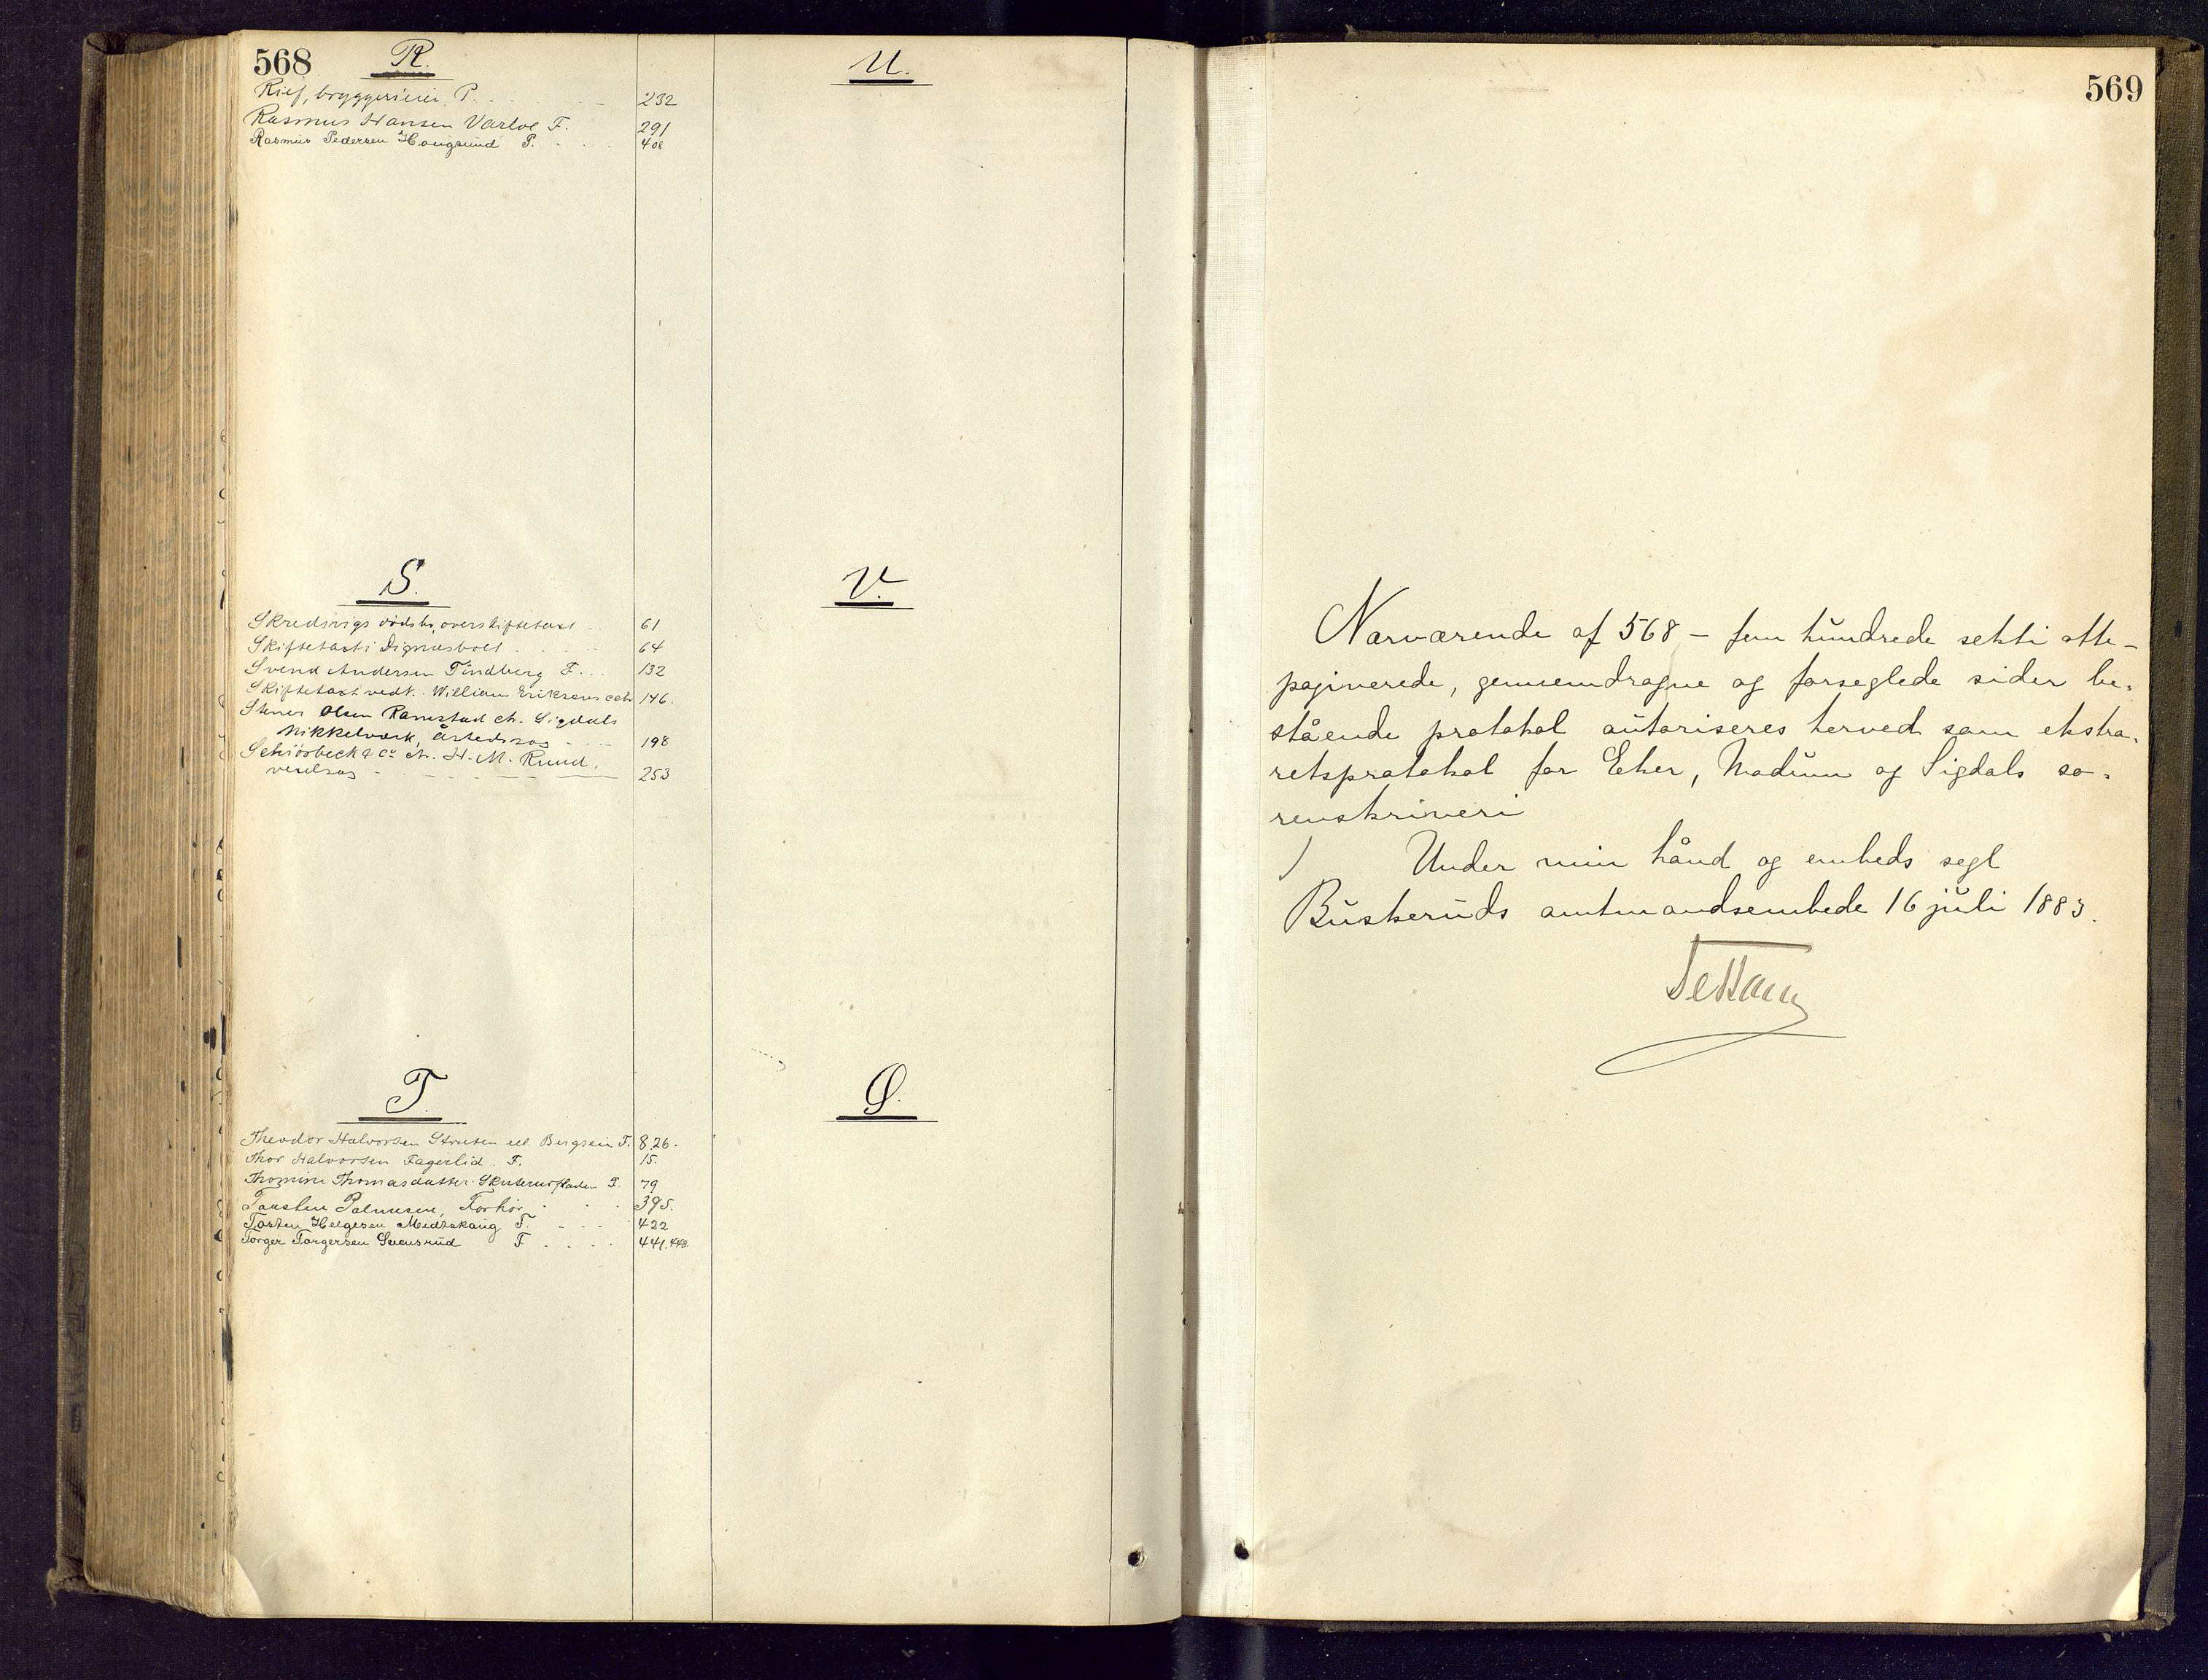 568
R.
Rief, bryggerieier, P. 232
Rasmus Hansen Varloe F. 291
Rasmus Pedersen Hougsund P. 408
S.
Skredsvigs dødsbo, overskiftetaxt 61
Skiftetaxt i Dignæsboet 64
Svend Andersen Tindberg F. 132
Skiftetaxt vedk. William Eriksens 146.
Stener Olsen Ramstad ctr. Sigdals
Nikkelværk, åstedssag 198
Schiørbeck & Co ctr. H. M. Ruud,
vexelsag 253
T.
Theodor Halvorsen Bergsein F. 8,26.
Thor Halvorsen Fagerlid. F. 15.
Thomine Thomasdatter F. 79
Forhør 395.
Torsten Helgesen Medtskaug F. 422
Torger Torgersen Svensrud F 441.443.
U.
V.
Ø.
569
Nærværende af 568 – fem hundrede seksti otte –
paginerede, gennemdragne og forseglede sider be-
stående protokol autoriseres herved som ekstra-
retsprotokol for Eker, Modum og Sigdals so-
renskriveri
Under min hånd og embeds segl
Buskeruds amtmandsembede 16 juli 1883.